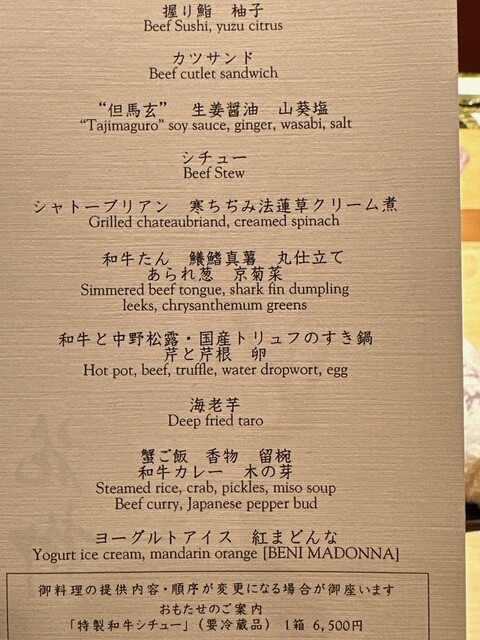 握り鮨　柚子
Beef Sushi, yuzu citrus
カツサンド
Beef cutlet sandwich
“但馬玄”　生姜醤油　山葵塩
“Tajimaguro” soy sauce, ginger, wasabi, salt
シチュー
Beef Stew
シャトーブリアン　寒ちぢみ法蓮草クリーム煮
Grilled chateaubriand, creamed spinach
和牛たん　鱶鰭真薯　丸仕立て
あられ葱　京菊菜
Simmered beef tongue, shark fin dumpling
leeks, chrysanthemum greens
和牛と中野松露・国産トリュフのすき鍋
芹と芹根　卵
Hot pot, beef, truffle, water dropwort, egg
海老芋
Deep fried taro
蟹ご飯　香物　留椀
和牛カレー　木の芽
Steamed rice, crab, pickles, miso soup
Beef curry, Japanese pepper bud
ヨーグルトアイス　紅まどんな
Yogurt ice cream, mandarin orange [BENI MADONNA]
御料理の提供内容・順序が変更になる場合が御座います
おもたせのご案内
「特製和牛シチュー」（要冷蔵品）　1箱 6,500円